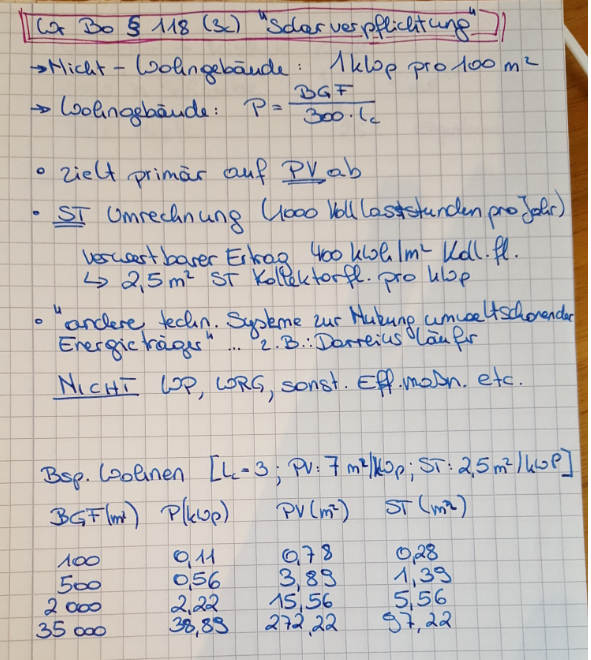 Wr Bo § 118 (3c) "Solarverpflichtung"
→ Nicht-Wohngebäude: 1kWp pro 100 m²
→ Wohngebäude: P = BGF / 300 · lc
• zielt primär auf PV ab
• ST Umrechnung (1000 Volllaststunden pro Jahr)
verwertbarer Ertrag 400 kWh/m² Koll.fl.
↳ 2,5 m² ST Kollektorfl. pro kWp
• "andere techn. Systeme zur Nutzung umweltschonender
Energieträger" ... z.B.: Darreius Läufer
NICHT WP, WRG, sonst. Eff.maßn. etc.
Bsp. Wohnen [lc = 3 ; PV: 7 m²/kWp ; ST: 2,5 m²/kWP]
BGF (m²) P (kWp) PV (m²) ST (m²)
100 0,11 0,78 0,28
500 0,56 3,89 1,39
2 000 2,22 15,56 5,56
35 000 38,89 272,22 97,22